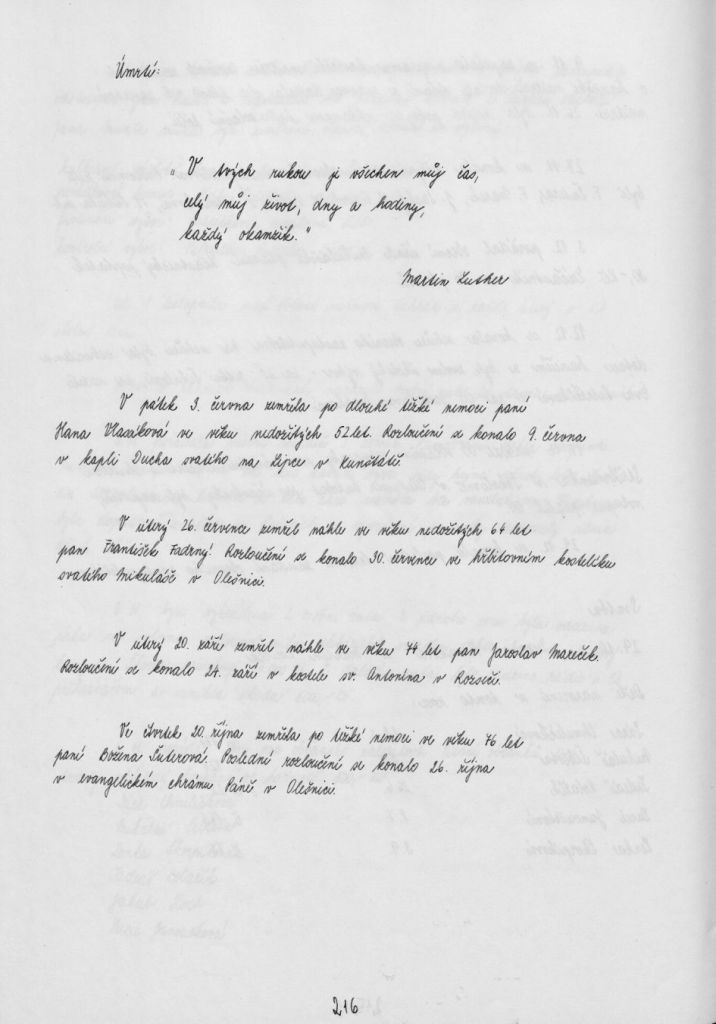 Úmrtí:
"V tvých rukou je všechen můj čas,
celý můj život, dny a hodiny,
každý okamžik."
Martin Luther
V pátek 3. června zemřela po dlouhé těžké nemoci paní
Hana Vlasáková ve věku nedožitých 52 let. Rozloučení se konalo 9. června
v kapli Ducha svatého na Lipce v Kunštátě.
V úterý 26. července zemřel náhle ve věku nedožitých 64 let
pan František Fadrný. Rozloučení se konalo 30. července ve hřbitovním kostelíku
svatého Mikuláše v Olešnici.
V úterý 20. září zemřel náhle ve věku 74 let pan Jaroslav Mareček.
Rozloučení se konalo 24. září v kostele sv. Antonína v Rozseči.
Ve čtvrtek 20. října zemřela po těžké nemoci ve věku 76 let
paní Božena Šuterová. Poslední rozloučení se konalo 26. října
v evangelickém chrámu Páně v Olešnici.
216